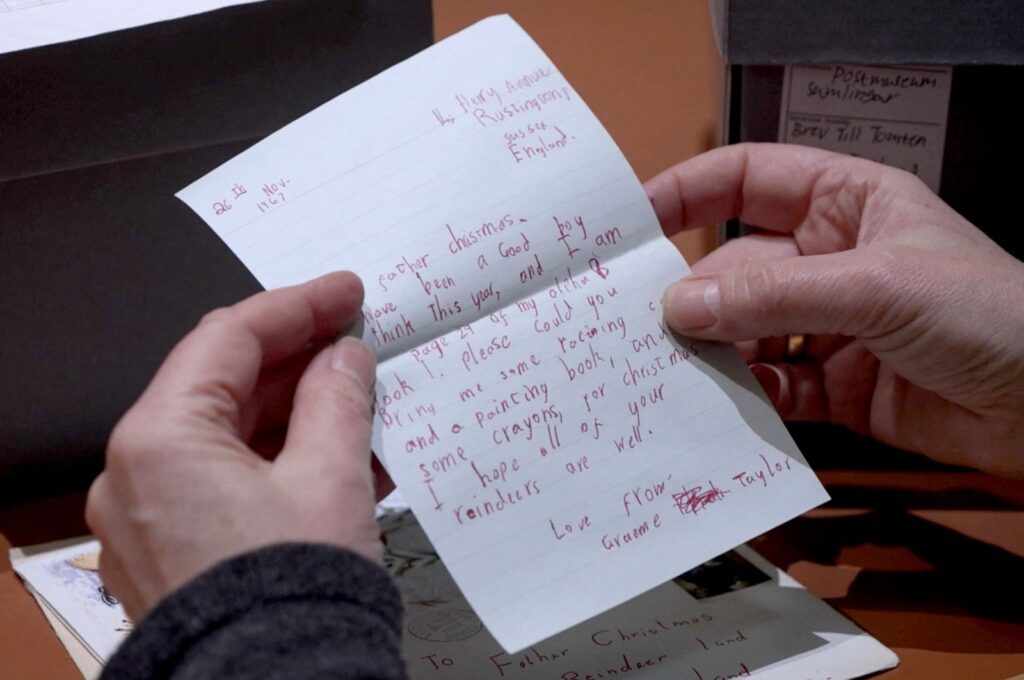 Henry Avenue
Rustington,
sussex
England.
26th Nov.
1967
father christmas.
have been a Good boy
think This year, and I am
page 29 of my alpha B
ook 1. please could you
Bring me some racing c
and a painting book, and
some crayons, for christmas
I hope all of your
reindeers are well.
Love from
Graeme Taylor
To Father Christmas
Reindeer land
land
Postmuseum
samlingar
Brev Till Tomten